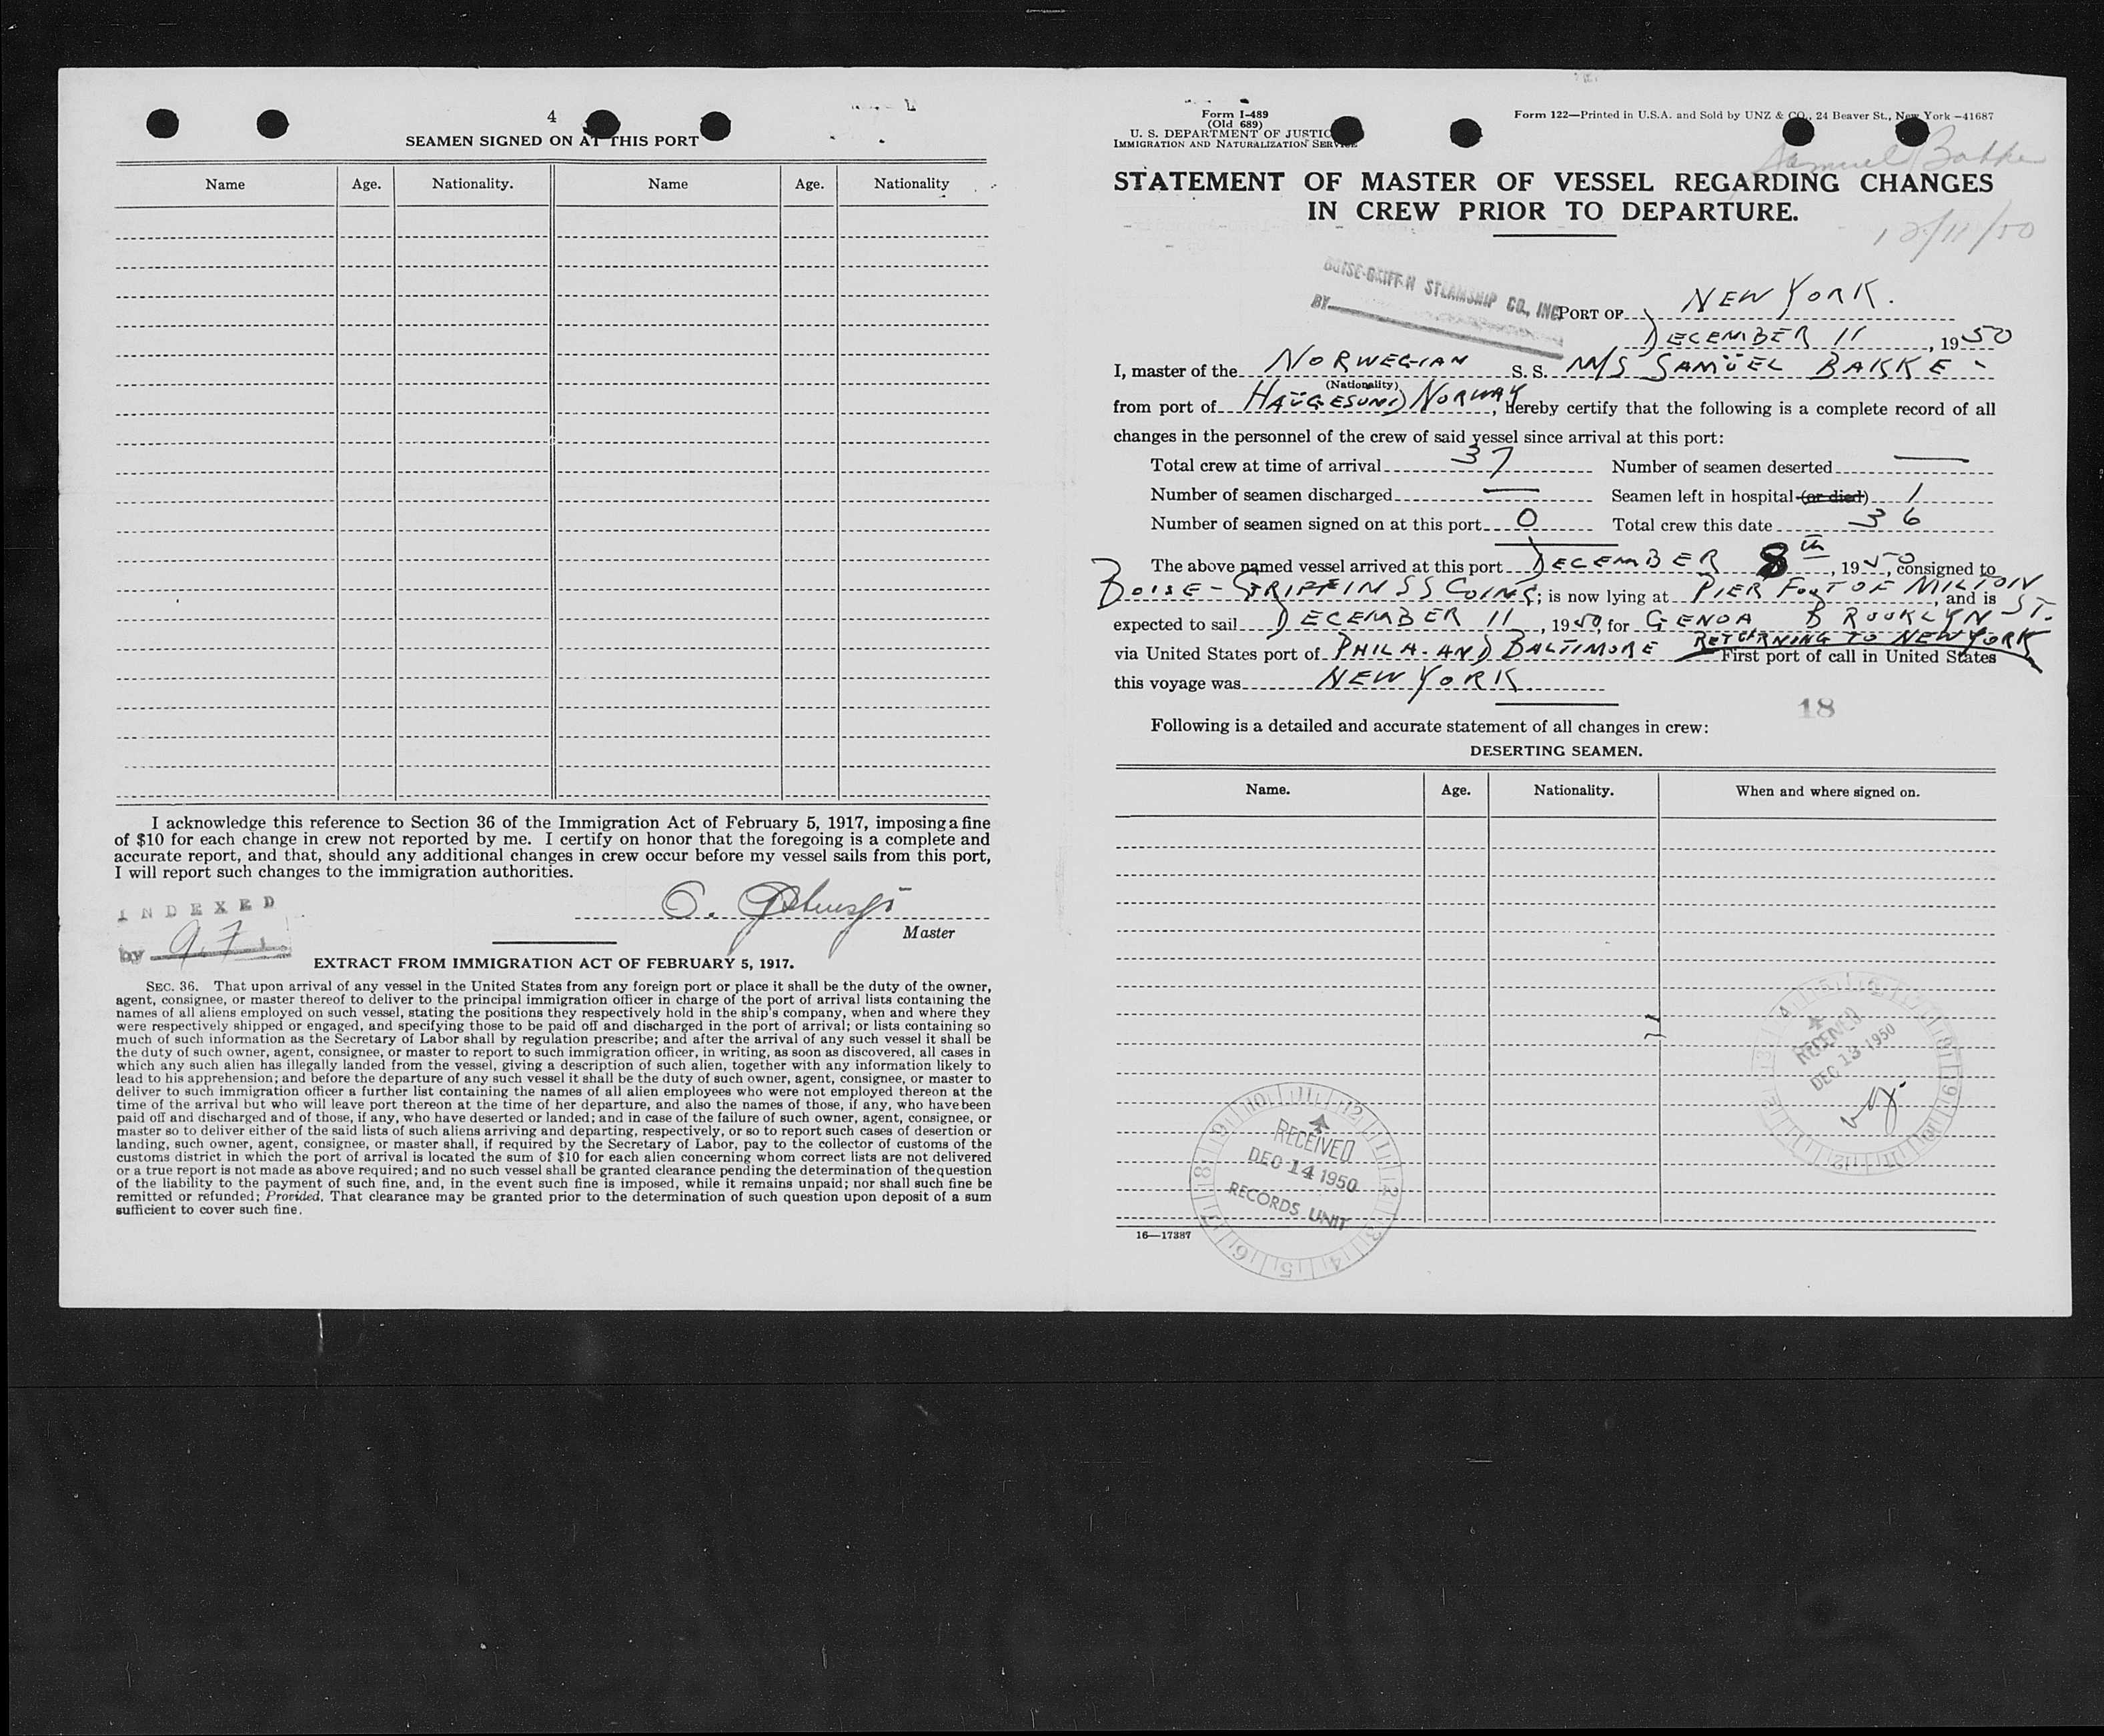 4
SEAMEN SIGNED ON AT THIS PORT
Name Age. Nationality. Name Age. Nationality
I acknowledge this reference to Section 36 of the Immigration Act of February 5, 1917, imposing a fine
of $10 for each change in crew not reported by me. I certify on honor that the foregoing is a complete and
accurate report, and that, should any additional changes in crew occur before my vessel sails from this port,
I will report such changes to the immigration authorities.
INDEXED
by
Master
EXTRACT FROM IMMIGRATION ACT OF FEBRUARY 5, 1917.
SEC. 36. That upon arrival of any vessel in the United States from any foreign port or place it shall be the duty of the owner,
agent, consignee, or master thereof to deliver to the principal immigration officer in charge of the port of arrival lists containing the
names of all aliens employed on such vessel, stating the positions they respectively hold in the ship's company, when and where they
were respectively shipped or engaged, and specifying those to be paid off and discharged in the port of arrival; or lists containing so
much of such information as the Secretary of Labor shall by regulation prescribe; and after the arrival of any such vessel it shall be
the duty of such owner, agent, consignee, or master to report to such immigration officer, in writing, as soon as discovered, all cases in
which any such alien has illegally landed from the vessel, giving a description of such alien, together with any information likely to
lead to his apprehension; and before the departure of any such vessel it shall be the duty of such owner, agent, consignee, or master to
deliver to such immigration officer a further list containing the names of all alien employees who were not employed thereon at the
time of the arrival but who will leave port thereon at the time of her departure, and also the names of those, if any, who have been
paid off and discharged and of those, if any, who have deserted or landed; and in case of the failure of such owner, agent, consignee, or
master so to deliver either of the said lists of such aliens arriving and departing, respectively, or so to report such cases of desertion or
landing, such owner, agent, consignee, or master shall, if required by the Secretary of Labor, pay to the collector of customs of the
customs district in which the port of arrival is located the sum of $10 for each alien concerning whom correct lists are not delivered
or a true report is not made as above required; and no such vessel shall be granted clearance pending the determination of the question
of the liability to the payment of such fine, and, in the event such fine is imposed, while it remains unpaid; nor shall such fine be
remitted or refunded; Provided, That clearance may be granted prior to the determination of such question upon deposit of a sum
sufficient to cover such fine.
Form I-489
(Old 689)
U. S. DEPARTMENT OF JUSTICE
IMMIGRATION AND NATURALIZATION SERVICE
Form 122—Printed in U.S.A. and Sold by UNZ & CO., 24 Beaver St., New York —41687
Samuel Bakke
STATEMENT OF MASTER OF VESSEL REGARDING CHANGES
IN CREW PRIOR TO DEPARTURE.
12/11/50
BOISE-GRIFFIN STEAMSHIP CO., INC.
BY
PORT OF NEW YORK.
DECEMBER 11, 1950
I, master of the NORWEGIAN S. S. M/S SAMÜEL BAKKE -
(Nationality)
from port of HAŪGESUND NORWAY, hereby certify that the following is a complete record of all
changes in the personnel of the crew of said vessel since arrival at this port:
Total crew at time of arrival 37 Number of seamen deserted —
Number of seamen discharged — Seamen left in hospital (or died) 1
Number of seamen signed on at this port 0 Total crew this date 36
The above named vessel arrived at this port DECEMBER 8th, 1950, consigned to
BOISE-GRIFFIN SS CO INC; is now lying at PIER FOOT OF MILTON ST., and is
expected to sail DECEMBER 11, 1950, for GENOA BROOKLYN
via United States port of PHILA. AND BALTIMORE RETURNING TO NEW YORK First port of call in United States
this voyage was NEW YORK.
18
Following is a detailed and accurate statement of all changes in crew:
DESERTING SEAMEN.
Name. Age. Nationality. When and where signed on.
RECEIVED
DEC 13 1950
RECEIVED
DEC 14 1950
RECORDS UNIT
16—17387